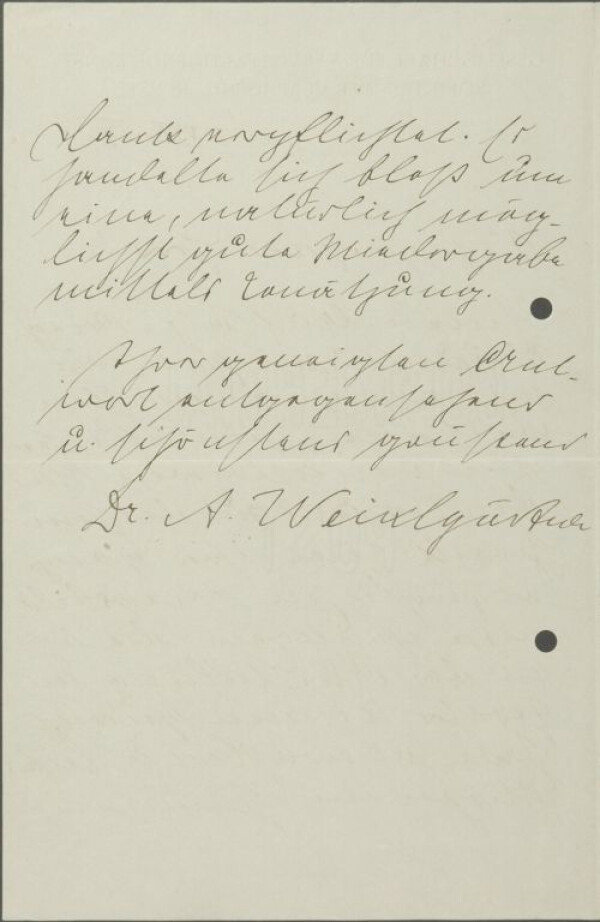 Danke verpflichtet. Es
handelte sich bloß um
eine, natürlich mög-
lichst gute Wiedergabe
mittels Zinkätzung.
Ihrer geneigten Ant-
wort entgegensehend
u. schönstens grüßend
Dr. A. Weixlgärtner